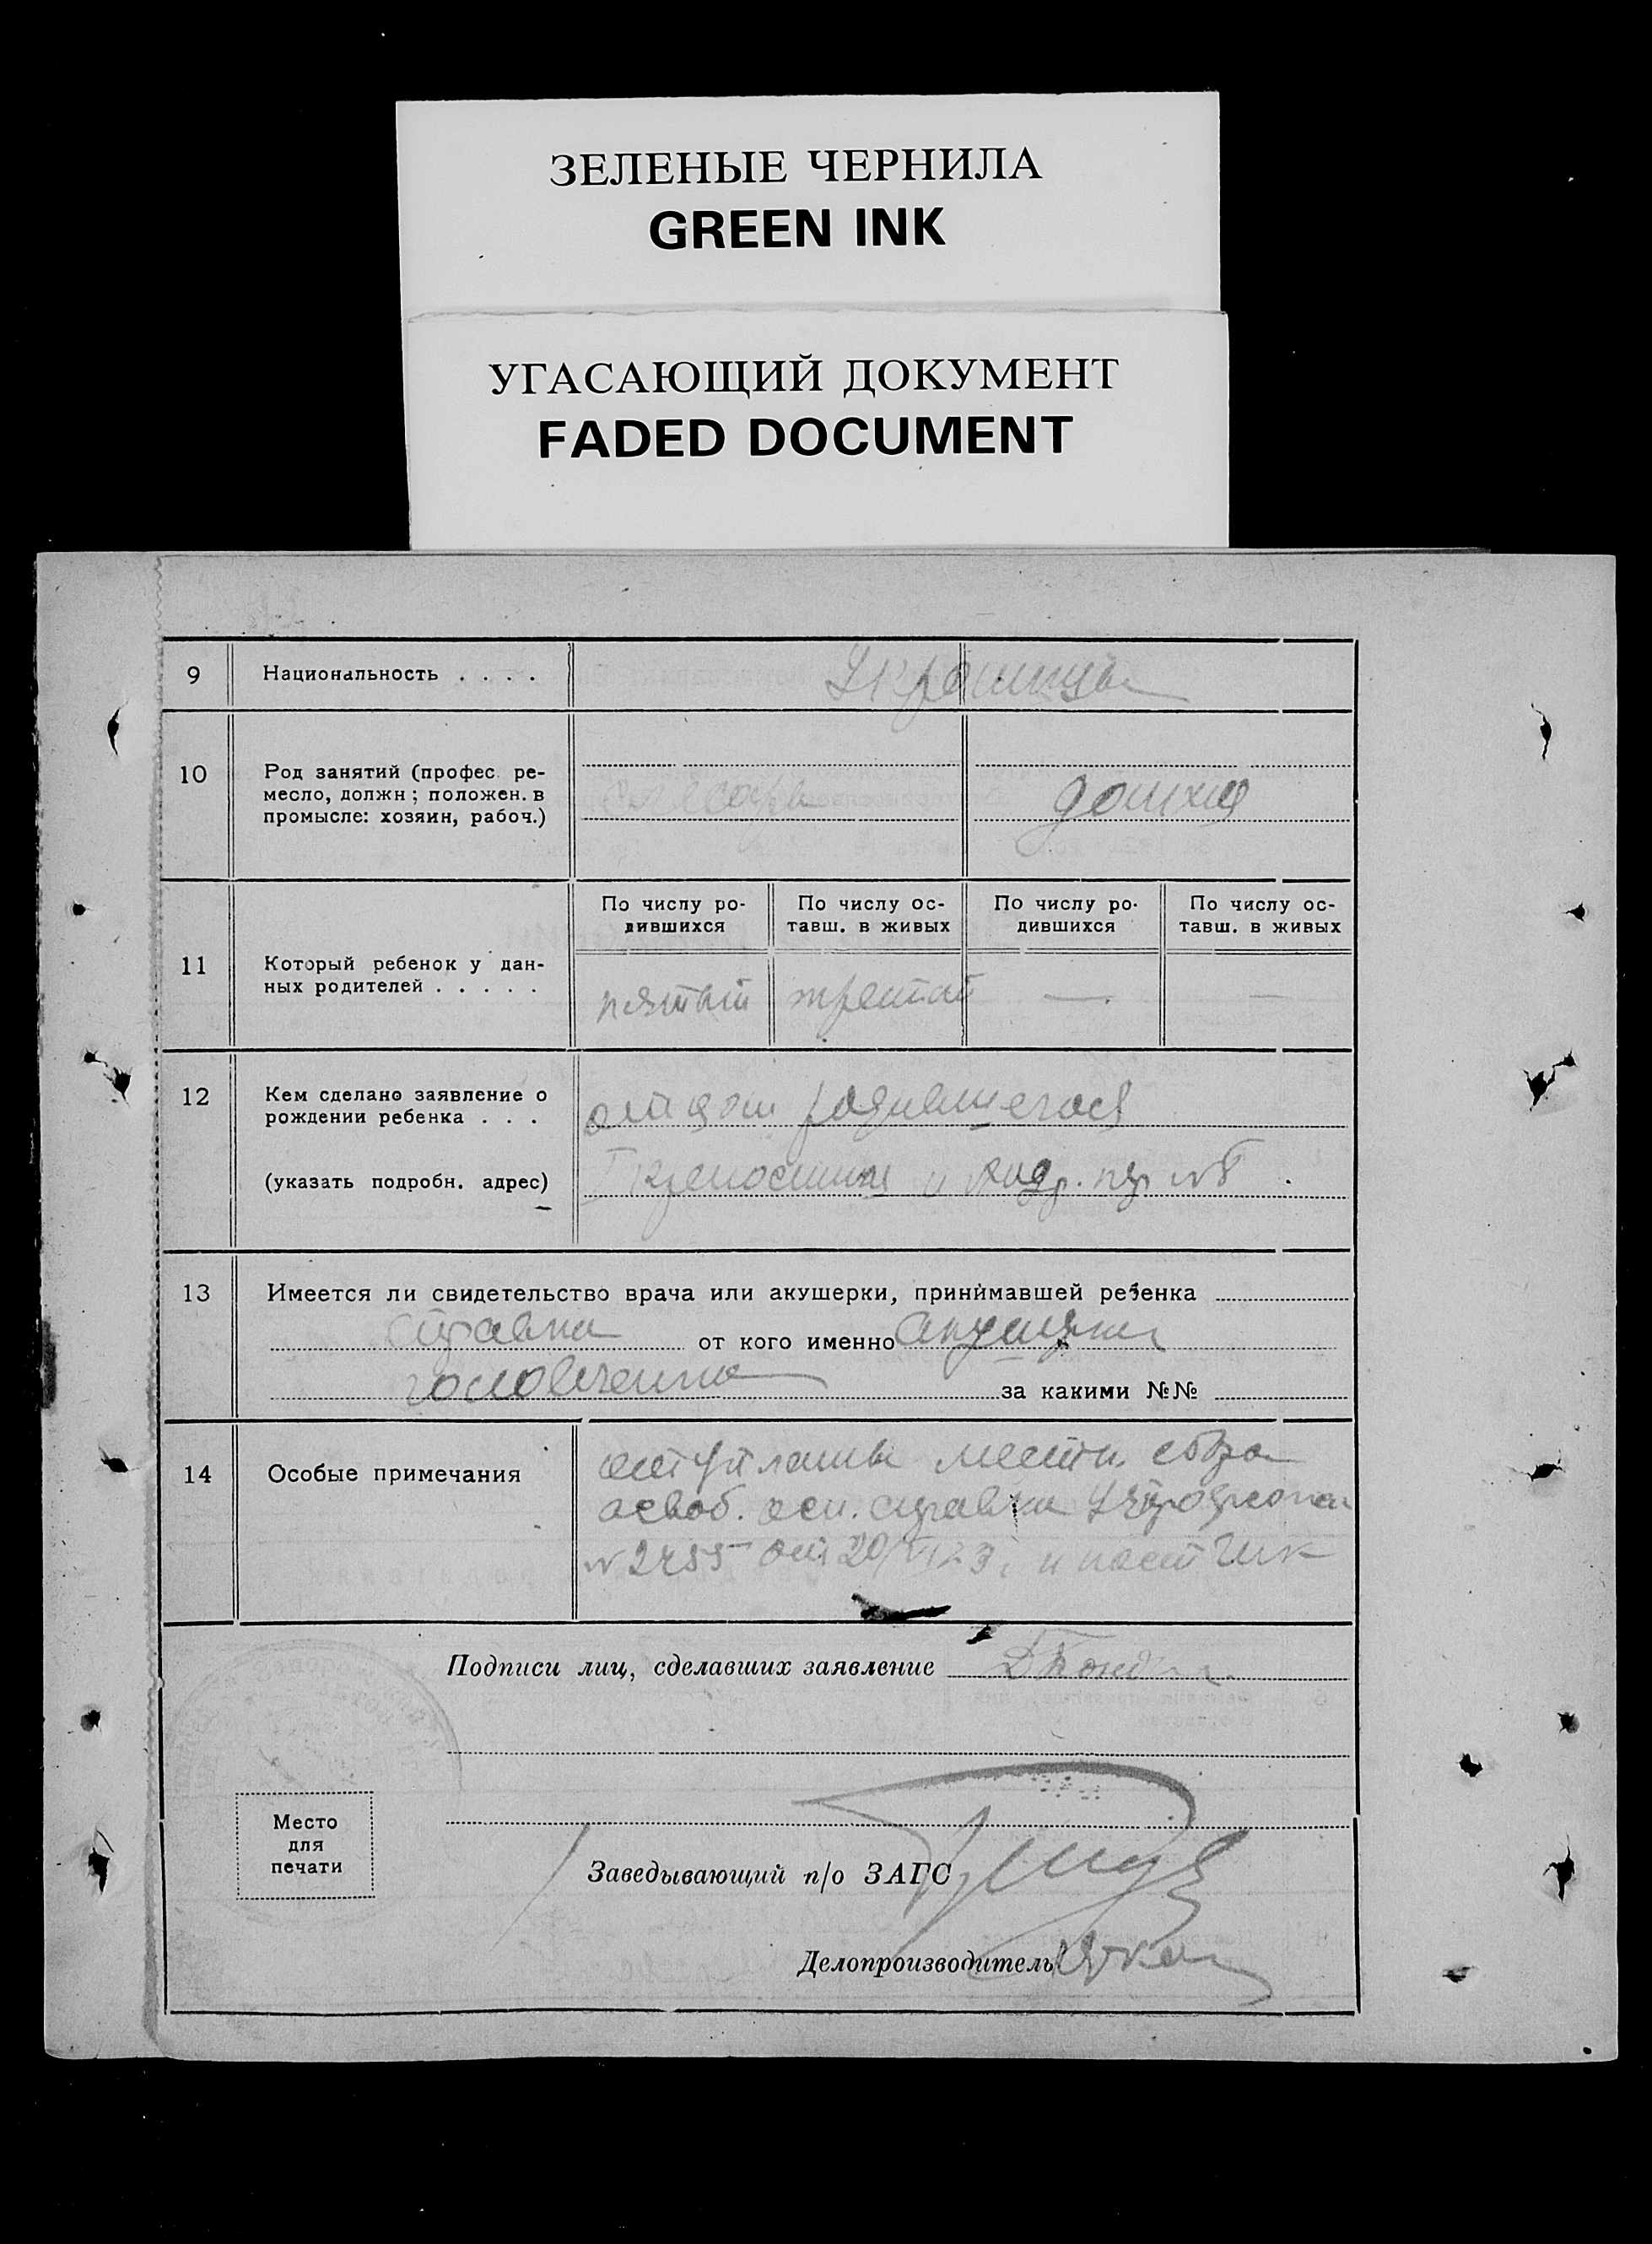 ЗЕЛЕНЫЕ ЧЕРНИЛА
GREEN INK
УГАСАЮЩИЙ ДОКУМЕНТ
FADED DOCUMENT
9 Национальность . . . . Украинцы
10 Род занятий (профес. ре-
месло, должн; положен. в
промысле: хозяин, рабоч.)
слесарь домхоз
11 Который ребенок у дан-
ных родителей . . . . .
По числу ро-
дившихся
По числу ос-
тавш. в живых
По числу ро-
дившихся
По числу ос-
тавш. в живых
пятый третий — —
12 Кем сделано заявление о
рождении ребенка . . .
отцом родившегося
(указать подробн. адрес)
и Андр. пер №8
13 Имеется ли свидетельство врача или акушерки, принимавшей ребенка
справка от кого именно акушерки
за какими №№
14 Особые примечания
от уплаты местн. сбора
освоб. осн. справки
№ 2455 от 20/VI 23 г. и пост
Подписи лиц, сделавших заявление
Место
для
печати
Заведывающий п/о ЗАГС
Делопроизводитель